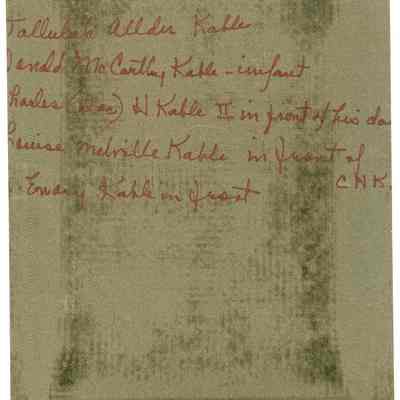 Tallulah Allder Kahle
Donald McCarthy Kahle - infant
Charles (Mac) H Kahle II in front of his da
Louise Melville Kahle in front of
C H K.
. Emory Kahle in front